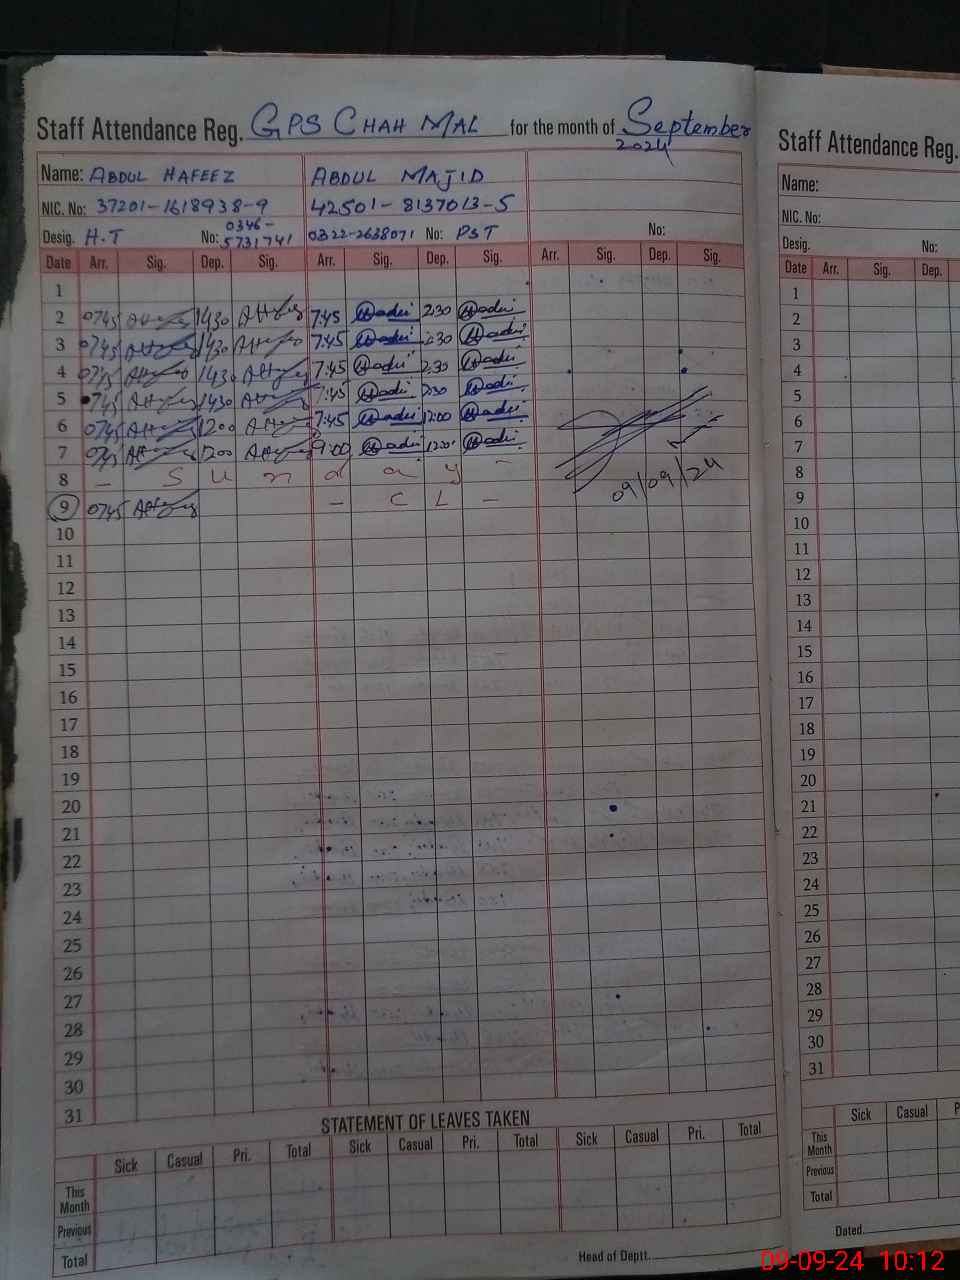 Staff Attendance Reg. GPS CHAH MAL for the month of September 2024
Name: ABDUL HAFEEZ ABDUL MAJID
NIC. No: 37201-1618938-9 42501-8137013-5
Desig. H.T No: 0346-5731741 0322-2638071 No: PST No:
Date Arr. Sig. Dep. Sig. Arr. Sig. Dep. Sig. Arr. Sig. Dep. Sig.
1
2 0745 1430 7:45 2:30
3 0745 1430 7:45 2:30
4 0745 1430 7:45 2:30
5 0745 1430 7:45 2:30
6 0745 1200 7:45 12:00
7 0745 1200 9:00 12:00
8 - S u n d a y -
9 0745 - C L -
09/09/24
10
11
12
13
14
15
16
17
18
19
20
21
22
23
24
25
26
27
28
29
30
31
STATEMENT OF LEAVES TAKEN
Sick Casual Pri. Total Sick Casual Pri. Total Sick Casual Pri. Total
This Month
Previous
Total
Head of Deptt.
Staff Attendance Reg.
Name:
NIC. No:
Desig. No:
Date Arr. Sig. Dep.
1
2
3
4
5
6
7
8
9
10
11
12
13
14
15
16
17
18
19
20
21
22
23
24
25
26
27
28
29
30
31
Sick Casual P
This Month
Previous
Total
Dated
09-09-24 10:12